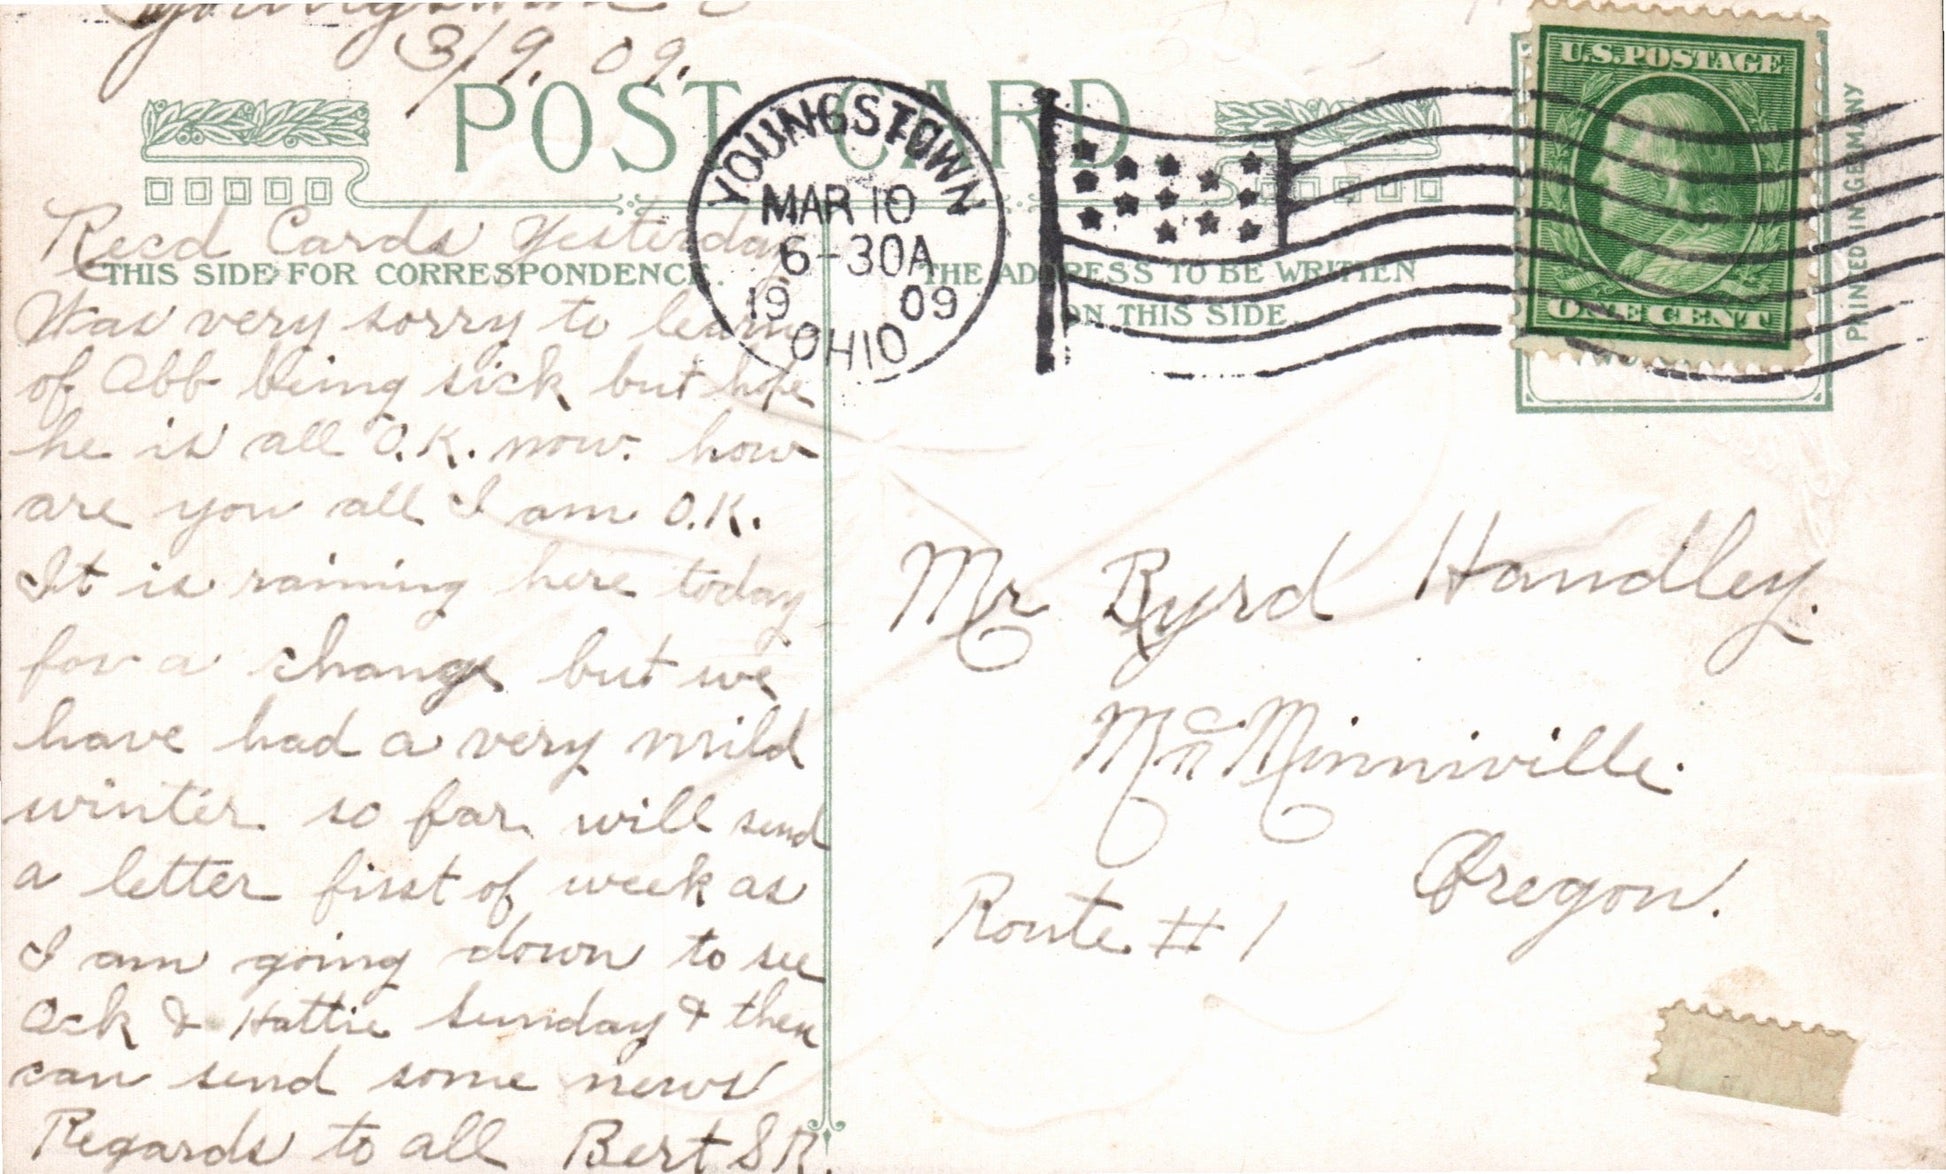 Youngstown O
3/9. 09.
POST CARD
YOUNGSTOWN
MAR 10
6-30A
19 09
OHIO
U.S. POSTAGE
ONE CENT
PRINTED IN GERMANY
THIS SIDE FOR CORRESPONDENCE.
THE ADDRESS TO BE WRITTEN
ON THIS SIDE.
Recd Cards Yesterday
Was very sorry to learn
of Abb being sick but hope
he is all O.K. now. how
are you all I am O.K.
It is raining here today
for a change but we
have had a very mild
winter so far will send
a letter first of week as
I am going down to see
Ack & Hattie Sunday & then
can send some news
Regards to all Bert S R.
Mr Byrd Handley.
McMinniville.
Oregon.
Route # 1